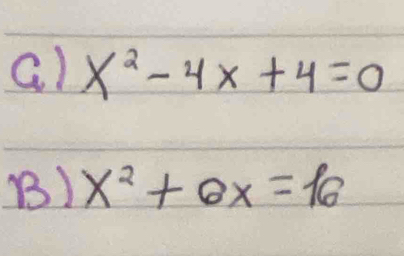 a) x² - 4x + 4 = 0
B) x² + 6x = 16